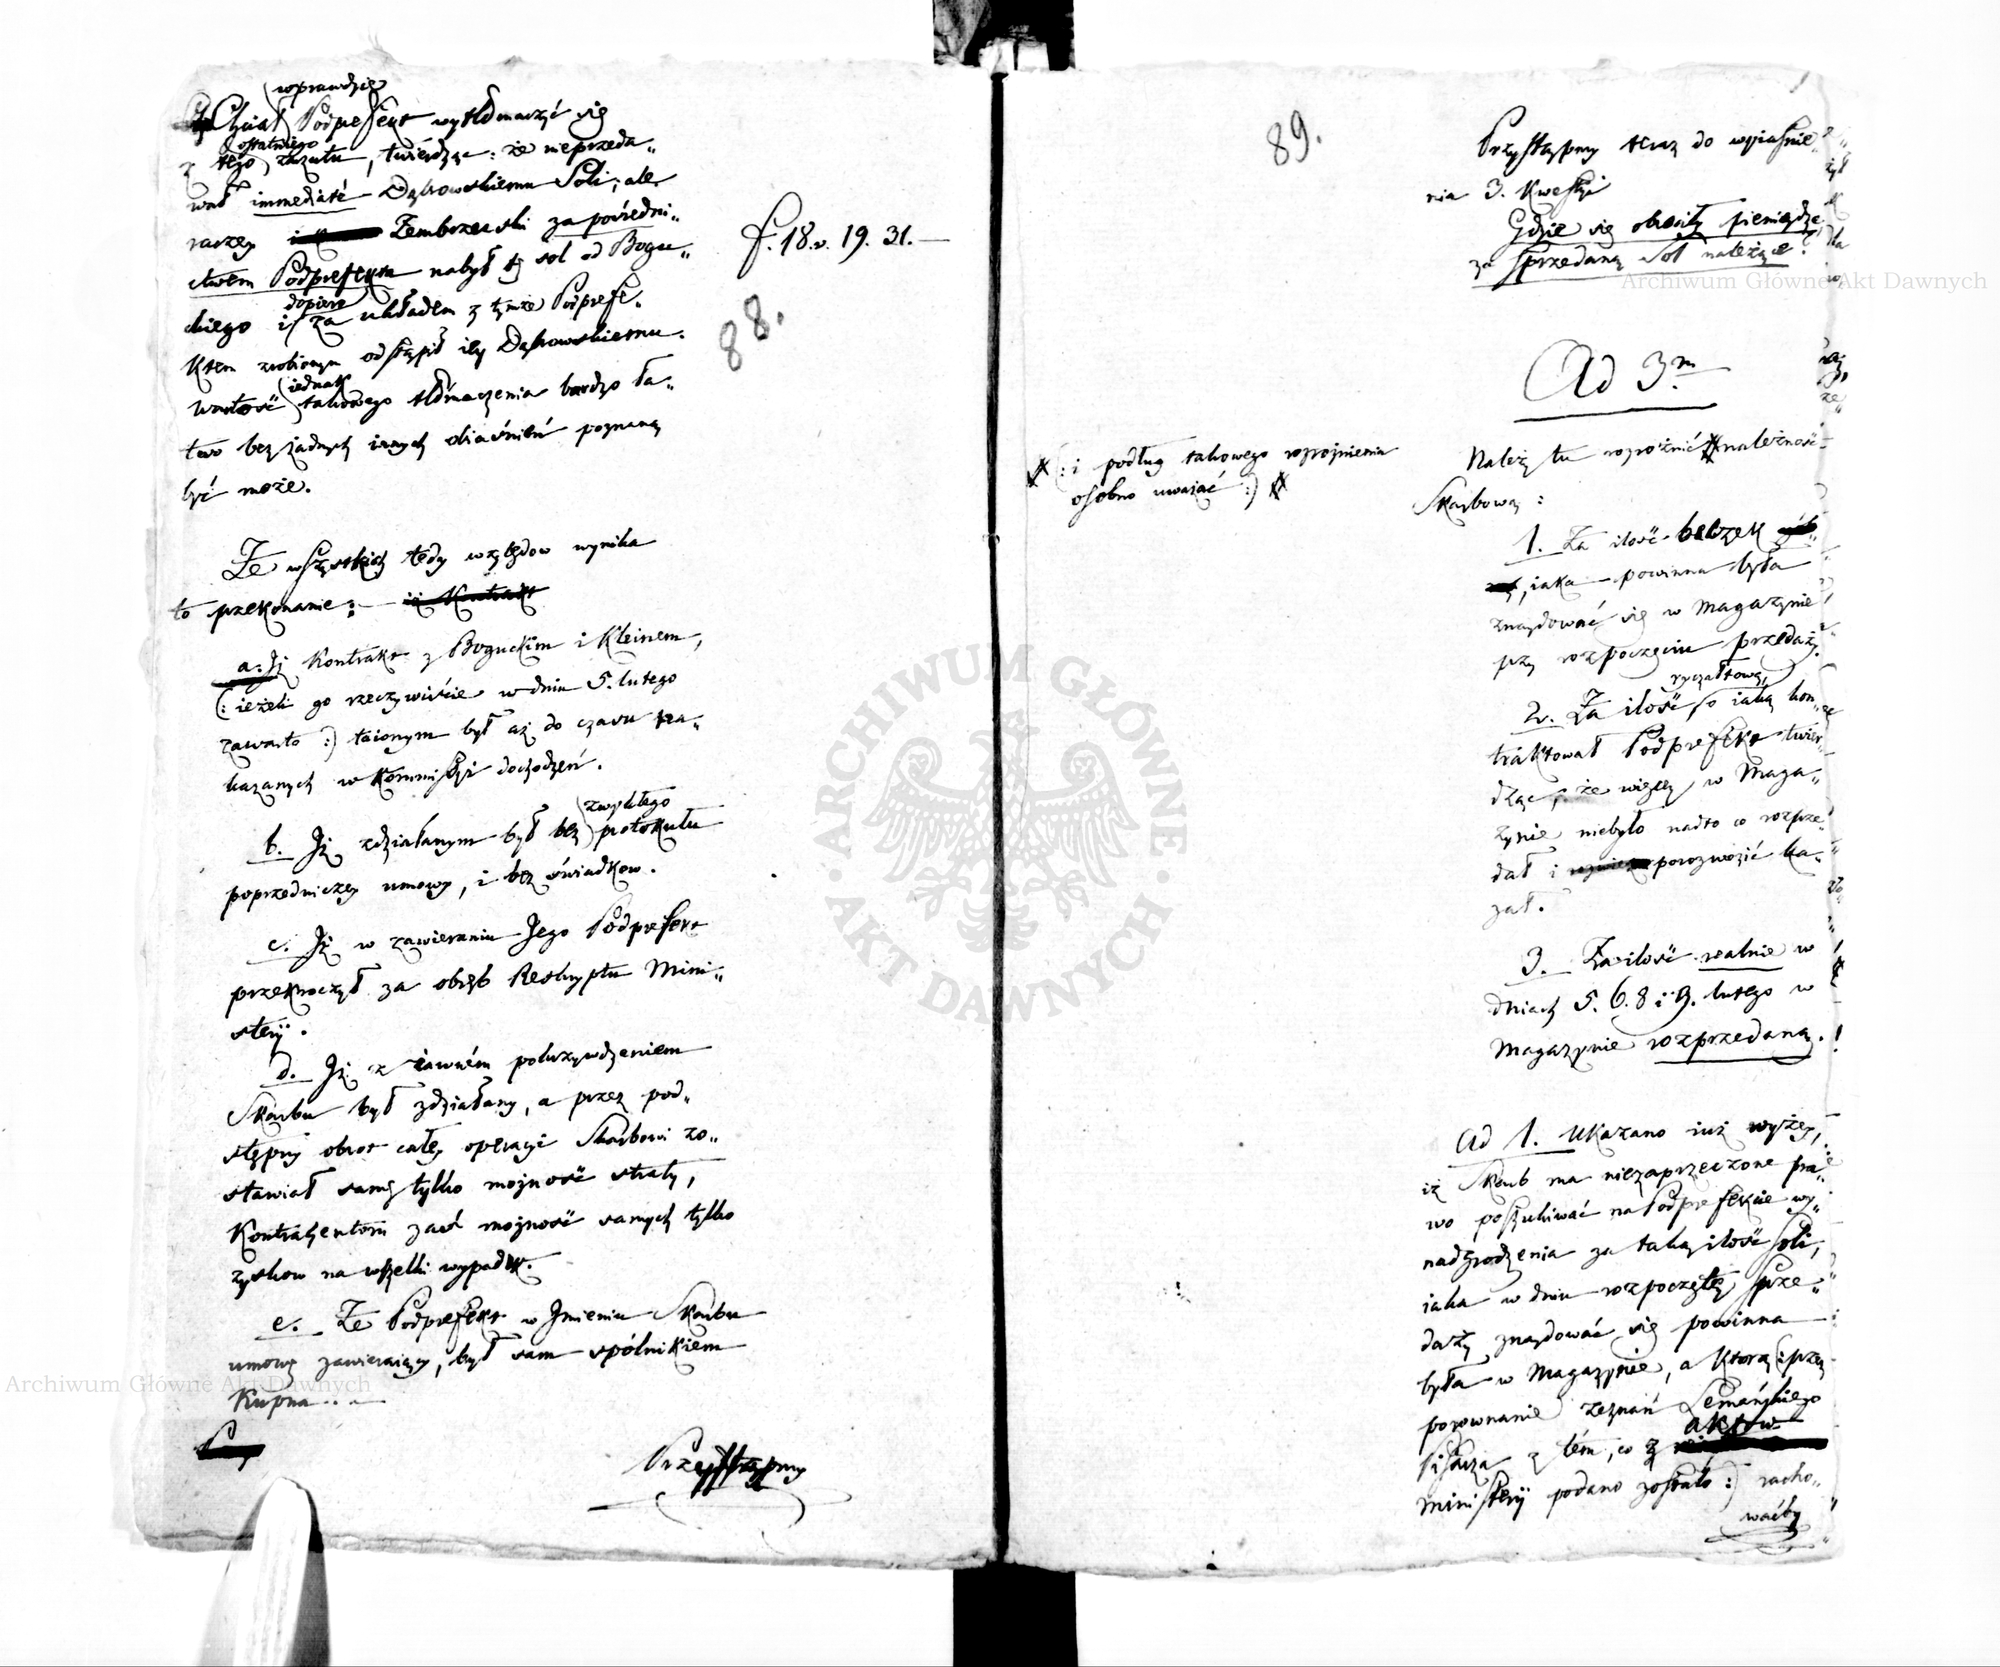 wprawdzie
Chciał Podprefekt wytłomaczyć się
ostatniego
z tego zarzutu, twierdząc: że nieprzeda„
wał immediate Dąbrowskiemu Soli; ale
raczey Zembrzeuski za pośredni„
ctwem Podprefekta nabył tę sol od Bogu„
dopiero
ckiego i za układem z tymże Podprefe„
ktem zrobionym odstąpił iey Dąbrowskiemu.
iednak
Wartość takowego tłómaczenia bardzo ła„
two bez żadnych innych obiaśnień poznaną
być może.
f. 18.v. 19. 31.
88.
Ze wszystkich tedy względow wynika
to przekonanie: iż Kontrakt
a: Iż Kontrakt z Boguckim i Kleinem,
(: ieżeli go rzeczywiście w dniu 5. lutego
zawarto :) taionym był aż do czasu na„
kazanych w Kommissyi dochodzeń.
zwykłego
b. Iż zdziałanym był bez protokułu
poprzedniczey umowy, i bez świadkow.
c. Iż w zawieraniu Jego Podprefekt
przekroczył za obręb Reskryptu Mini„
steryi.
d. Iż z iawném pokrzywdzeniem
Skarbu był zdziałany, a przez pod„
stępny obrot całey operacyi Skarbowi zo„
stawiał samę tylko możność straty,
Kontrahentom zaś możność samych tylko
zyskow na wszelki wypadek.
e. Że Podprefekt w Imieniu Skarbu
umowę zawieraiący, był sam spólnikiem
Kupna...
Przystąpmy
89.
Przystąpmy teraz do wyiaśnie„
nia 3. Kwestyi
Gdzie się obróciły pieniądze
za sprzedaną Sol należące?
Ad 3m
Należy tu rozróżnić należność
Skarbową:
(: i podług takowego rozróżnienia
osobno uważać :)
1. Za ilość beczek
iaka powinna była
znaydować się w Magazynie
przy rozpoczęciu przedaży.
ryczałtową
2. Za ilość, o iaką kon„
traktował Podprefekt twier„
dząc, że więcey w Maga„
zynie niebyło nadto co rozprze„
dał i porozwozić ka„
zał.
3. Za ilość realnie w
dniach 5. 6. 8 i 9. lutego w
Magazynie rozprzedaną.
Ad 1. Ukazano iuż wyżey,
iż Skarb ma niezaprzeczone pra„
wo poszukiwać na Podprefekcie wy„
nadgrodzenia za taką ilość soli,
iaka w dniu rozpoczętey sprze„
daży znaydować się powinna
była w Magazynie, a Ktorą (: przez
porownanie zeznań Lemańskiego
aktow
Pisarza z tém, co z
Ministeryi podano zostało :) racho„
waćby
ARCHIWUM GŁÓWNE AKT DAWNYCH
Archiwum Główne Akt Dawnych
Archiwum Główne Akt Dawnych